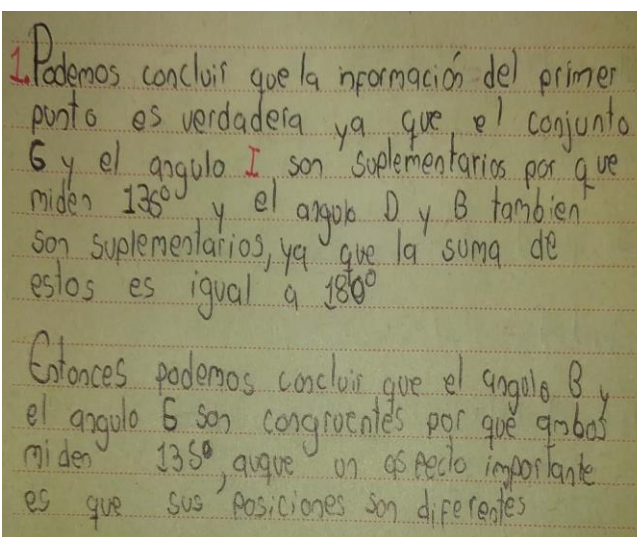 1. Podemos concluir que la nformación del primer
punto es verdadera ya que el conjunto
G y el angulo I son suplementarios por que
miden 136° y el angulo D y B tambien
son suplementarios, ya que la suma de
estos es igual a 180°
Entonces podemos concluir que el angulo B y
el angulo G son congruentes por que ambos
miden 135°, auque un aspecto importante
es que sus posiciones son diferentes